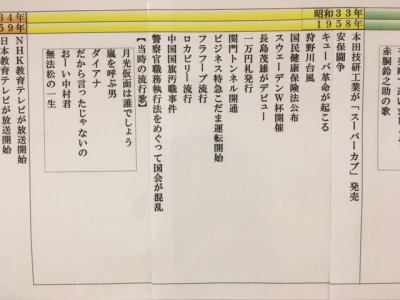 赤胴鈴之助の歌
昭和33年
1958年
本田技研工業が「スーパーカブ」発売
安保闘争
キューバ革命が起こる
狩野川台風
国民健康保険法公布
スウェーデンW杯開催
長島茂雄がデビュー
一万円札発行
関門トンネル開通
ビジネス特急こだま運転開始
フラフープ流行
ロカビリー流行
中国国旗汚職事件
警察官職務執行法をめぐって国会が混乱
【当時の流行歌】
月光仮面は誰でしょう
嵐を呼ぶ男
ダイアナ
だから言ったじゃないの
おーい中村君
無法松の一生
34年
59年
NHK教育テレビが放送開始
日本教育テレビが放送開始